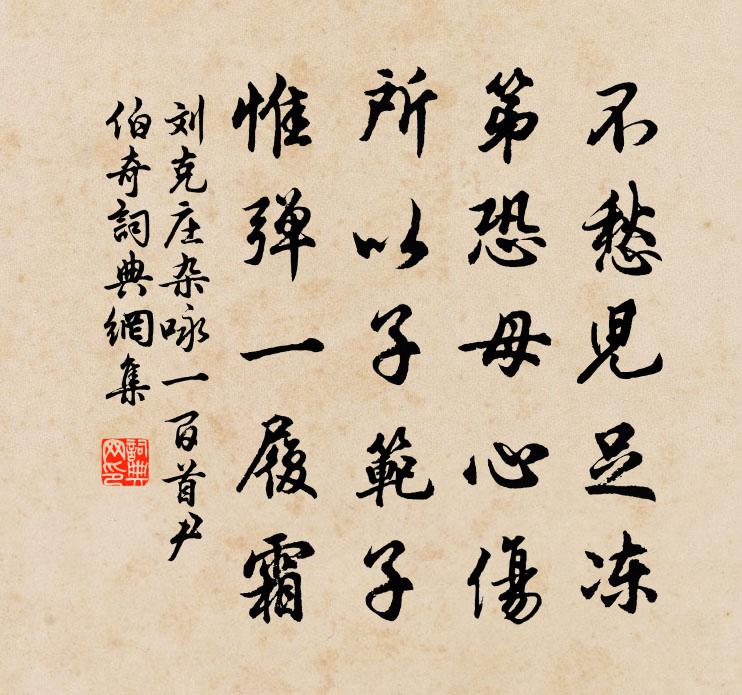 不愁児足冻
第恐母心傷
所以子範子
惟弹一履霜
刘克庄杂咏一百首尹
伯奇詞典網集
詞典
网印